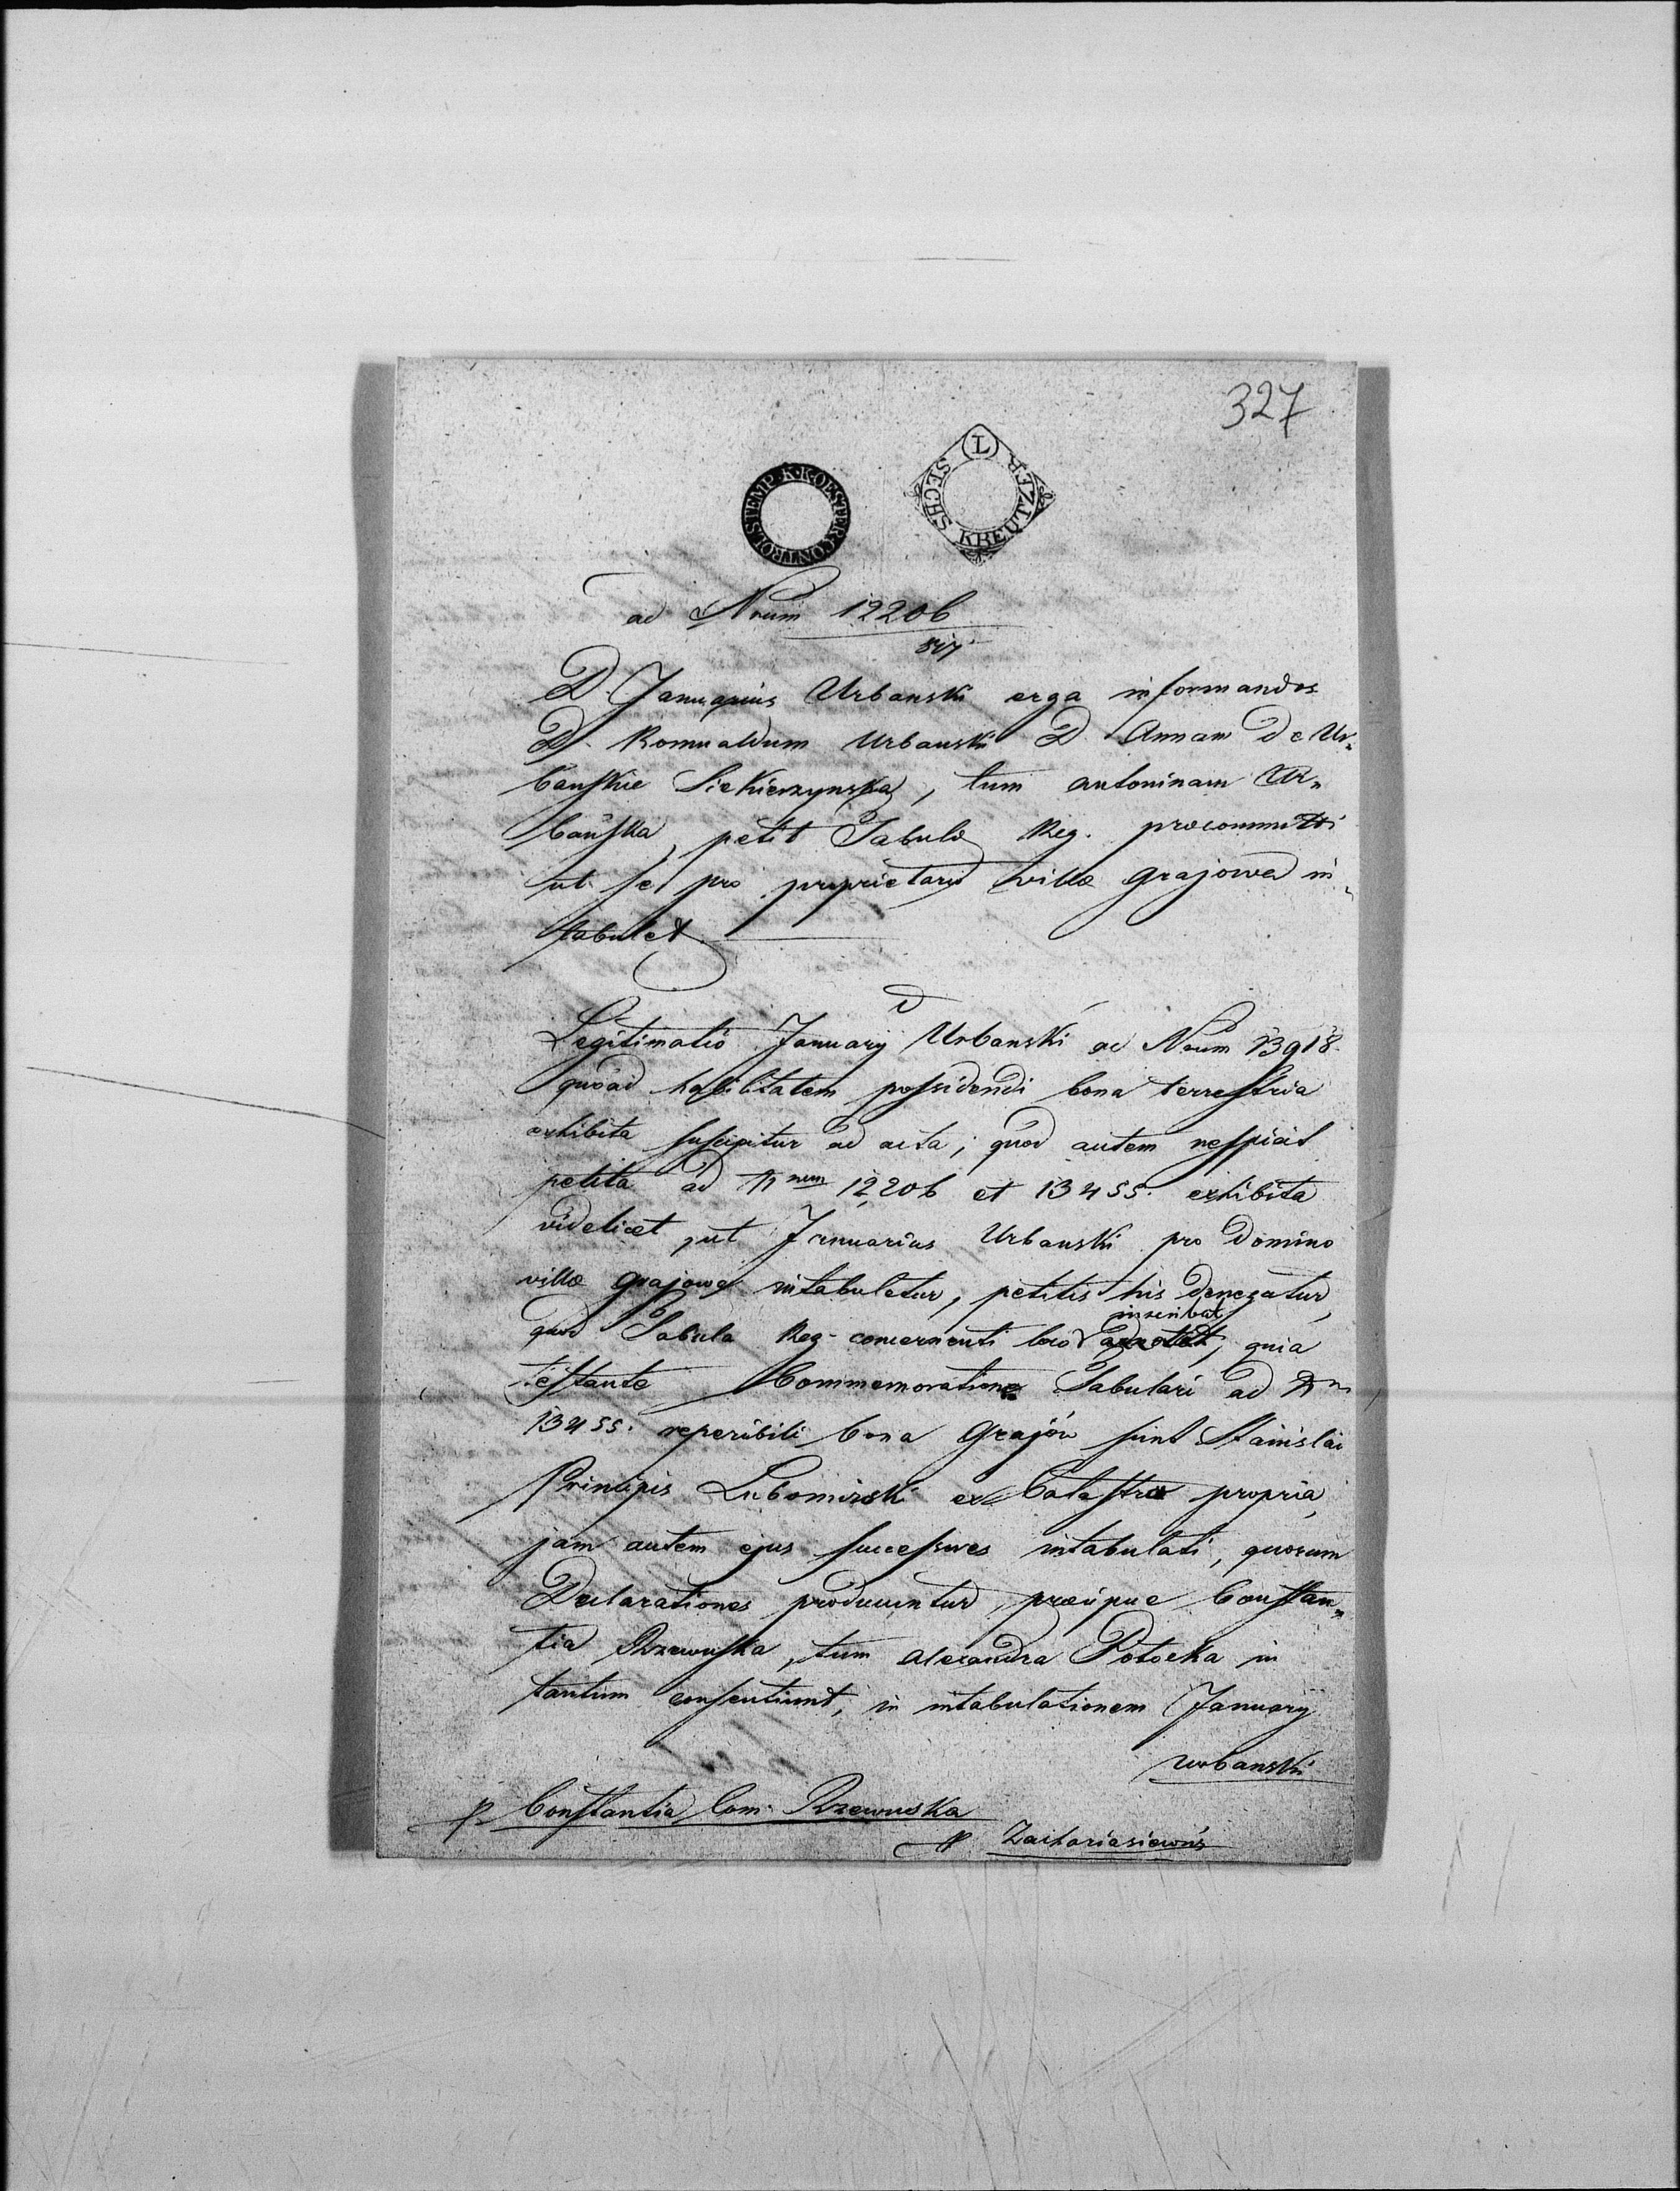 327
K·K·OESTER·CONTROL·STEMP
L SECHS KREUTZER
ad Nrum 12206
817
D. Januarius Urbanski erga informandos
D. Romualdum Urbanski D Annam De Ur„
bańskie Siekierzynska, tum antoninam Ur„
bańska, petit Tabulæ Reg. præcommitti
ut se pro proprietario villæ grajowa in„
tabulet
Legitimatio Januarij D Urbanski ad Nrum 13918.
quoad habilitatem possidendi bona terrestria
exhibita suscipitur ad acta; quod autem respicit
petita ad Nrum 12206 et 13455. exhibita
videlicet, ut Januarius Urbanski pro Domino
villæ grajowa intabuletur, petitis his denegatur,
quod Tabula Reg. concernenti loco inscribat, quia
testante Commemoratione Tabulari ad Nrum
13455. reperibili bona Grajów sunt Stanislai
Principis Lubomirski ex Catastro propria,
jam autem ejus successores intabulati, quorum
Declarationes producuntur, præcipue Constan„
tia Rzewuska, tum Alexandra Potocka in
tantum consentiunt, in intabulationem Januarij
Urbanski
p Constantia Com. Rzewuska
p Zachariasiewicz